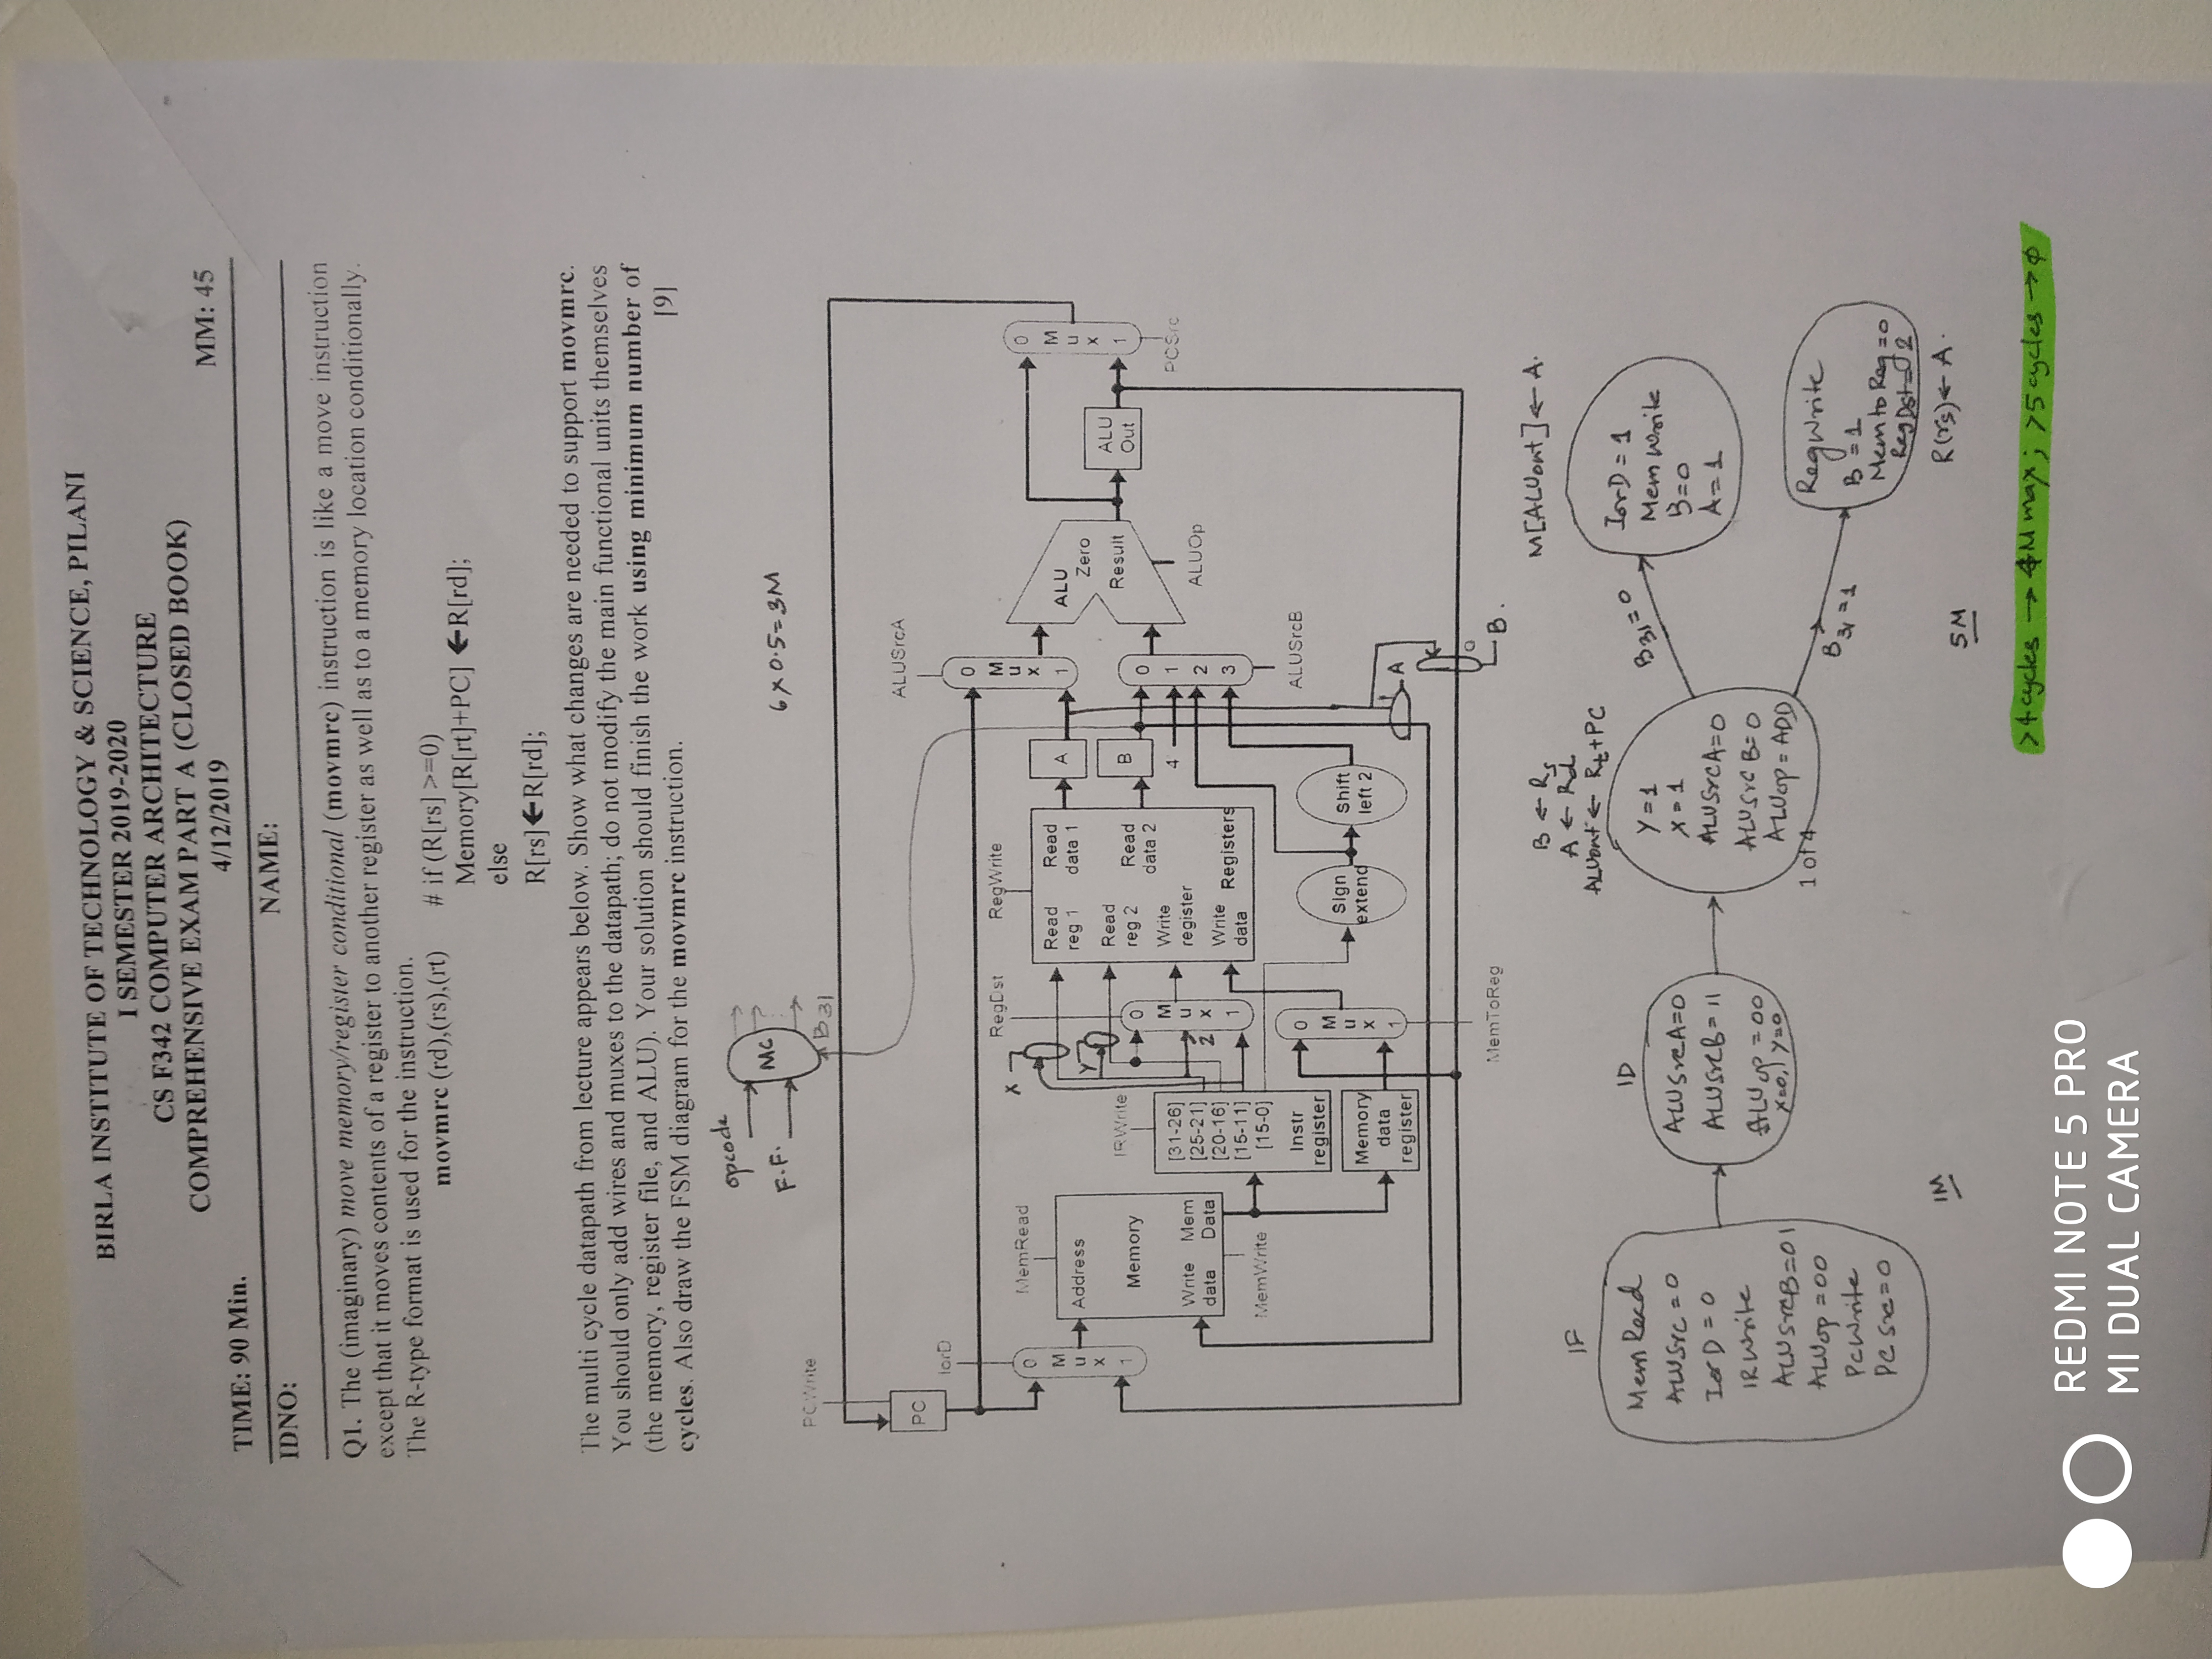 BIRLA INSTITUTE OF TECHNOLOGY & SCIENCE, PILANI
I SEMESTER 2019-2020
CS F342 COMPUTER ARCHITECTURE
COMPREHENSIVE EXAM PART A (CLOSED BOOK)
4/12/2019
TIME: 90 Min.
MM: 45
IDNO:
NAME:
Q1. The (imaginary) move memory/register conditional (movmrc) instruction is like a move instruction
except that it moves contents of a register to another register as well as to a memory location conditionally.
The R-type format is used for the instruction.
movmrc (rd),(rs),(rt) # if (R[rs] >=0)
Memory[R[rt]+PC] ←R[rd];
else
R[rs]←R[rd];
The multi cycle datapath from lecture appears below. Show what changes are needed to support movmrc.
You should only add wires and muxes to the datapath; do not modify the main functional units themselves
(the memory, register file, and ALU). Your solution should finish the work using minimum number of
cycles. Also draw the FSM diagram for the movmrc instruction. [9]
opcode
F.F.
MC
B31
6 x 0.5 = 3M
PCWrite
PC
IorD
0
M
u
x
1
MemRead
Address
Memory
Write data
Mem Data
MemWrite
IRWrite
[31-26]
[25-21]
[20-16]
[15-11]
[15-0]
Instr
register
Memory
data
register
X
Y
RegDst
0
M
u
2
x
1
RegWrite
Read reg 1
Read data 1
Read reg 2
Read data 2
Write register
Write data
Registers
0
M
u
x
1
MemToReg
Sign
extend
Shift
left 2
A
B
4
ALUSrcA
0
M
u
x
1
0
1
2
3
ALUSrcB
ALU
Zero
Result
ALUOp
ALU
Out
0
M
u
x
1
PCSrc
1
A
0
B.
IF
MemRead
ALUSrc = 0
IorD = 0
IRWrite
ALUSrcB=01
ALUop =00
PCWrite
PC Src=0
1M
ID
ALUSrcA=0
ALUSrcB= 11
ALUop =00
X=0, Y=0
B ← Rs
A ← Rd
ALUout ← Rt+PC
Y=1
X=1
ALUSrcA=0
ALUSrc B=0
ALUop = ADD
1 of 4
B31=0
B31=1
M[ALUout] ← A.
IorD = 1
Mem Write
B=0
A=1
RegWrite
B =1
Mem to Reg =0
RegDst= 2
R(rs) ← A.
5M
>4 cycles → 4M max; >5 cycles → φ
REDMI NOTE 5 PRO
MI DUAL CAMERA